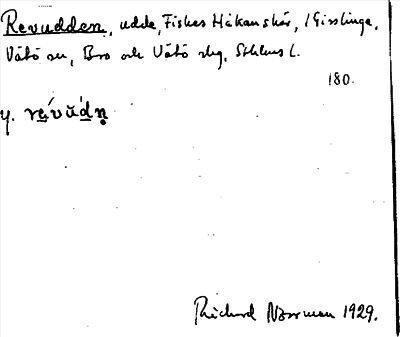 Revudden, udde, Fiskes Håkanskär, i Gisslinge,
Vätö sn, Bro och Vätö skg, Sthlms l.
180.
y. re̱´vŭ´d̲n̥
Richard Norrman 1929.